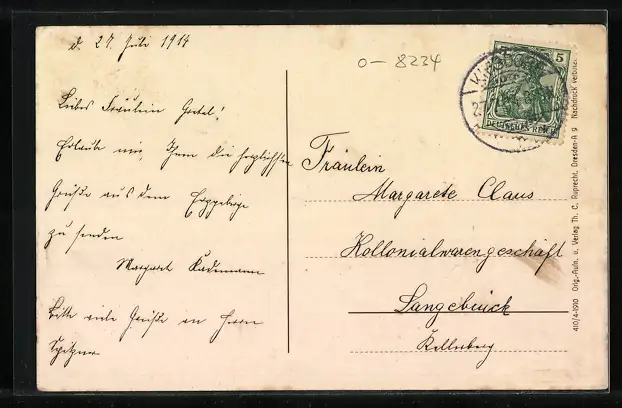 d. 27. Juli 1914
o- 8234
Liebes Fräulein Gretel!
Erlaube mir, Ihnen die herzlichsten
Grüße aus dem Erzgebirge
zu senden
Margaret
Bitte viele Grüße an Herrn
Spitzner
Fräulein
Margarete Claus
Kollonialwarengeschäft
Langebrück
DEUTSCHES REICH
5
410/4-1910 Orig.-Aufn. u. Verlag Th. C. Ruprecht, Dresden-A 9 Nachdruck verboten